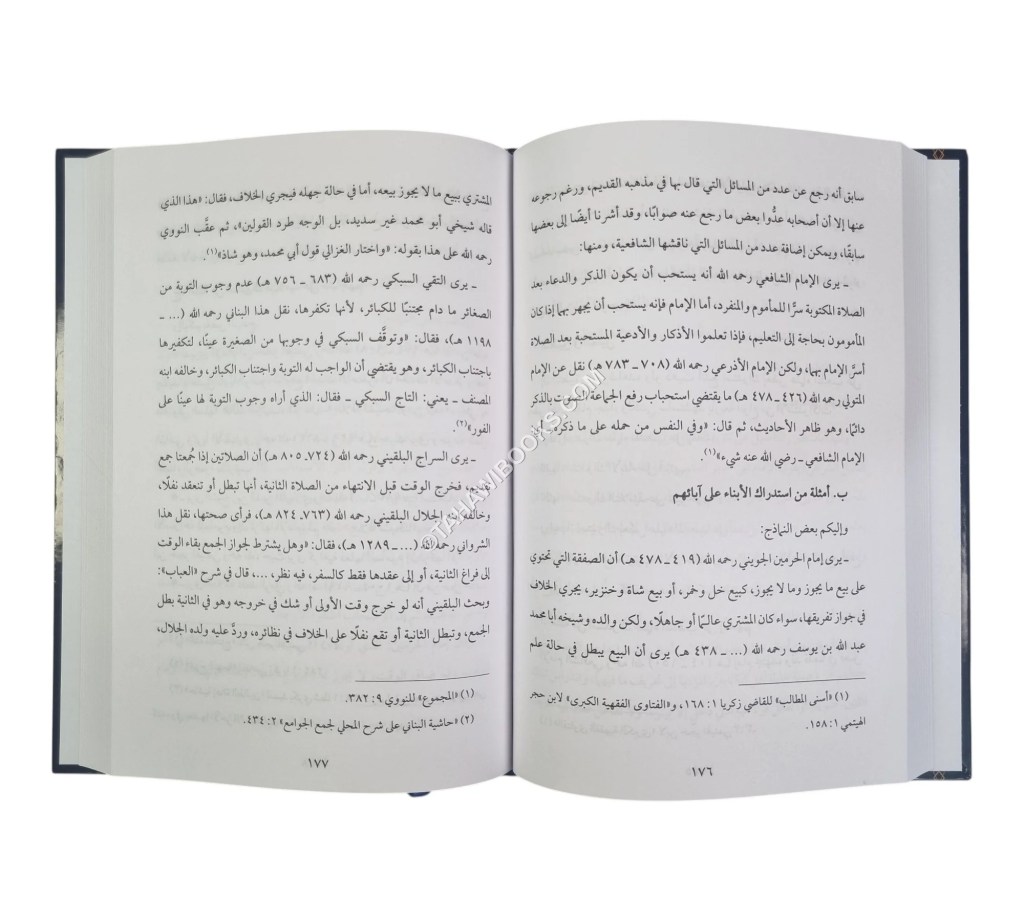 سابق أنه رجع عن عدد من المسائل التي قال بها في مذهبه القديم، ورغم رجوعه
عنها إلا أن أصحابه عدُّوا بعض ما رجع عنه صوابًا، وقد أشرنا أيضًا إلى بعضها
سابقًا، ويمكن إضافة عدد من المسائل التي ناقشها الشافعية، ومنها:
ـ يرى الإمام الشافعي رحمه الله أنه يستحب أن يكون الذكر والدعاء بعد
الصلاة المكتوبة سرًّا للمأموم والمنفرد، أما الإمام فإنه يستحب أن يجهر بهما إذا كان
المأمومون بحاجة إلى التعليم، فإذا تعلموا الأذكار والأدعية المستحبة بعد الصلاة
أسرَّ الإمام بهما، ولكن الإمام الأذرعي رحمه الله (٧٠٨ ـ ٧٨٣ هـ) نقل عن الإمام
المتولي رحمه الله (٤٢٦ ـ ٤٧٨ هـ) ما يقتضي استحباب رفع الجماعة الصوت بالذكر
دائمًا، وهو ظاهر الأحاديث، ثم قال: «وفي النفس من حمله على ما ذكره ـ أي
الإمام الشافعي ـ رضي الله عنه شيء»(١).
ب. أمثلة من استدراك الأبناء على آبائهم
وإليكم بعض النماذج:
ـ يرى إمام الحرمين الجويني رحمه الله (٤١٩ ـ ٤٧٨ هـ) أن الصفقة التي تحتوي
على بيع ما يجوز وما لا يجوز، كبيع خل وخمر، أو بيع شاة وخنزير، يجري الخلاف
في جواز تفريقها، سواء كان المشتري عالمًا أو جاهلًا، ولكن والده وشيخه أبا محمد
عبد الله بن يوسف رحمه الله (... ـ ٤٣٨ هـ) يرى أن البيع يبطل في حالة علم
(١) «أسنى المطالب» للقاضي زكريا ١: ١٦٨، و«الفتاوى الفقهية الكبرى» لابن حجر
الهيتمي ١: ١٥٨.
١٧٦
المشتري ببيع ما لا يجوز بيعه، أما في حالة جهله فيجري الخلاف، فقال: «هذا الذي
قاله شيخي أبو محمد غير سديد، بل الوجه طرد القولين»، ثم عقَّب النووي
رحمه الله على هذا بقوله: «واختار الغزالي قول أبي محمد، وهو شاذ»(١).
ـ يرى التقي السبكي رحمه الله (٦٨٣ ـ ٧٥٦ هـ) عدم وجوب التوبة من
الصغائر ما دام مجتنبًا للكبائر، لأنها تكفرها، نقل هذا البناني رحمه الله (... ـ
١١٩٨ هـ)، فقال: «وتوقَّف السبكي في وجوبها من الصغيرة عينًا، لتكفيرها
باجتناب الكبائر، وهو يقتضي أن الواجب له التوبة واجتناب الكبائر، وخالفه ابنه
المصنف ـ يعني: التاج السبكي ـ فقال: الذي أراه وجوب التوبة لها عينًا على
الفور»(٢).
ـ يرى السراج البلقيني رحمه الله (٧٢٤ـ ٨٠٥ هـ) أن الصلاتين إذا جُمعتا جمع
تقديم، فخرج الوقت قبل الانتهاء من الصلاة الثانية، أنها تبطل أو تنعقد نفلًا،
وخالفه ابنه الجلال البلقيني رحمه الله (٧٦٣ـ ٨٢٤ هـ)، فرأى صحتها، نقل هذا
الشرواني رحمه الله (... ـ ١٢٨٩ هـ)، فقال: «وهل يشترط لجواز الجمع بقاء الوقت
إلى فراغ الثانية، أو إلى عقدها فقط كالسفر، فيه نظر، ...، قال في شرح «العباب»:
وبحث البلقيني أنه لو خرج وقت الأولى أو شك في خروجه وهو في الثانية بطل
الجمع، وتبطل الثانية أو تقع نفلًا على الخلاف في نظائره، وردَّ عليه ولده الجلال،
(١) «المجموع» للنووي ٩: ٣٨٢.
(٢) «حاشية البناني على شرح المحلي لجمع الجوامع» ٢: ٤٣٤.
١٧٧
©TAHAWIBOOKS.COM